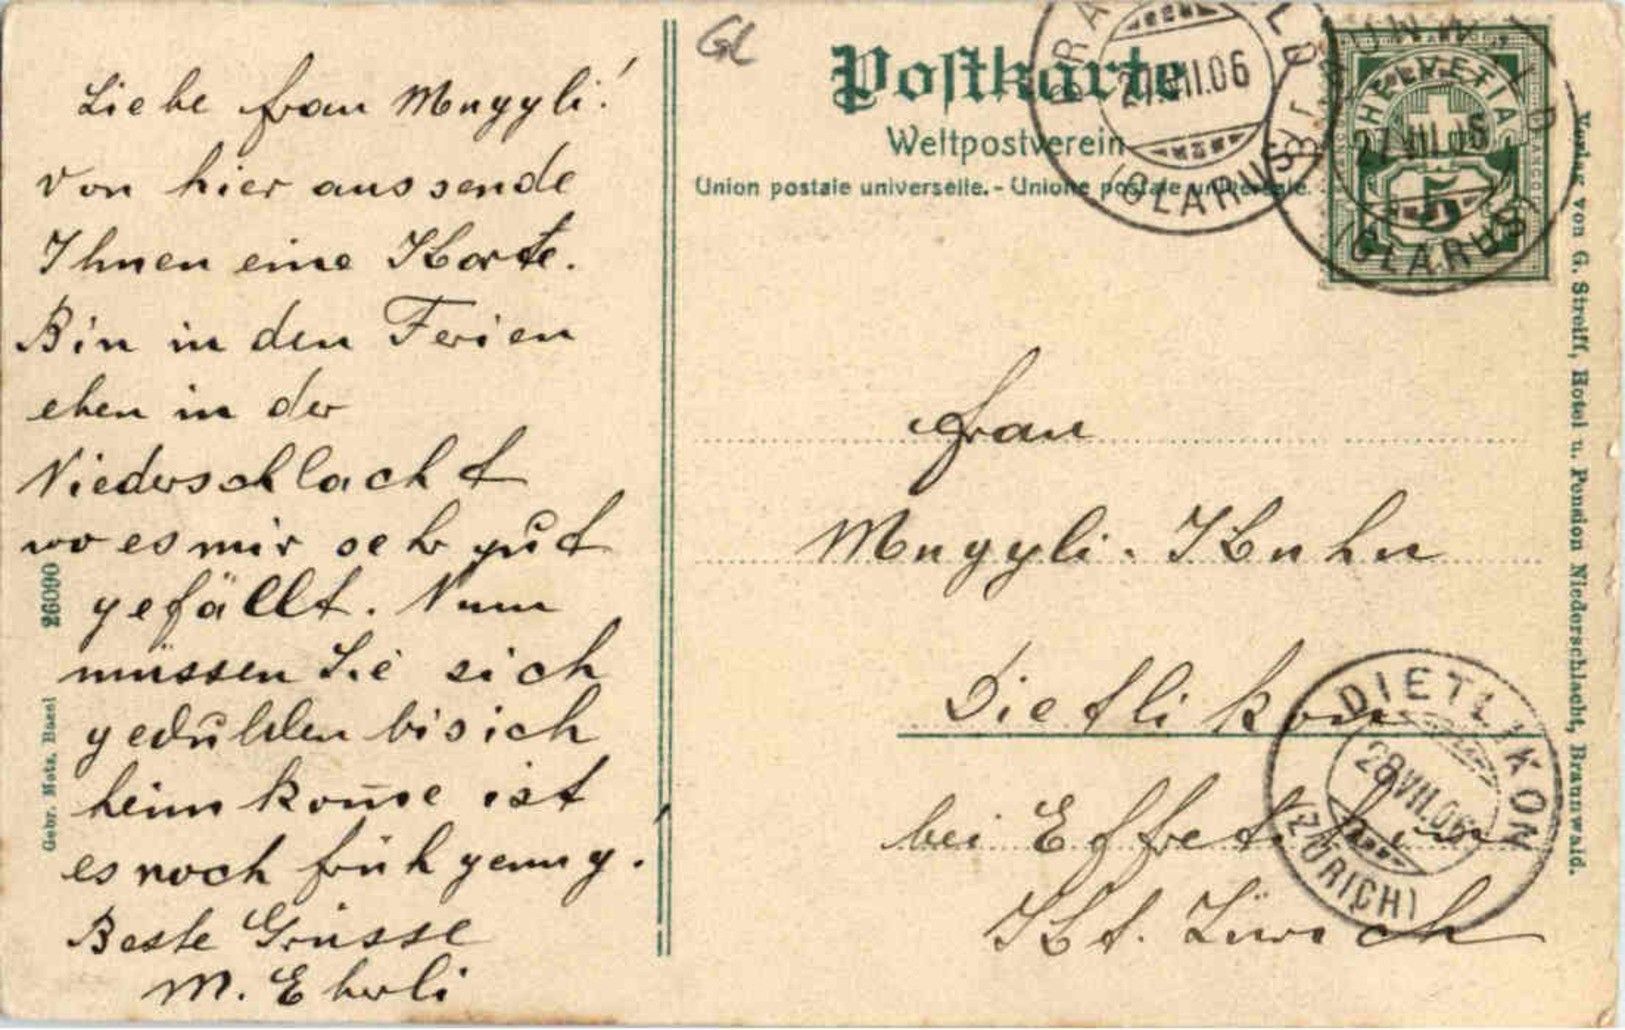 Liebe Frau Muggli!
Von hier aus sende
Ihnen eine Karte.
Bin in den Ferien
eben in der
Niederschlacht
wo es mir sehr gut
gefällt. Nun
müssen Sie sich
gedulden bis ich
heim kom̄e ist
es noch früh genug.
Beste Grüsse
M. Eberli
26090
Gebr. Metz, Basel
GL
Postkarte
Weltpostverein
Union postale universelle. - Unione postale universale.
(GLARUS)
27.VII.06
HELVETIA
FRANCO
5
27.VII.06
(GLARUS)
Frau
Muggli-Kuhn
Dietlikon
bei Effretikon
Kt. Zürich
DIETLIKON
28.VII.06
(ZÜRICH)
Verlag von G. Streiff, Hotel u. Pension Niederschlacht, Braunwald.